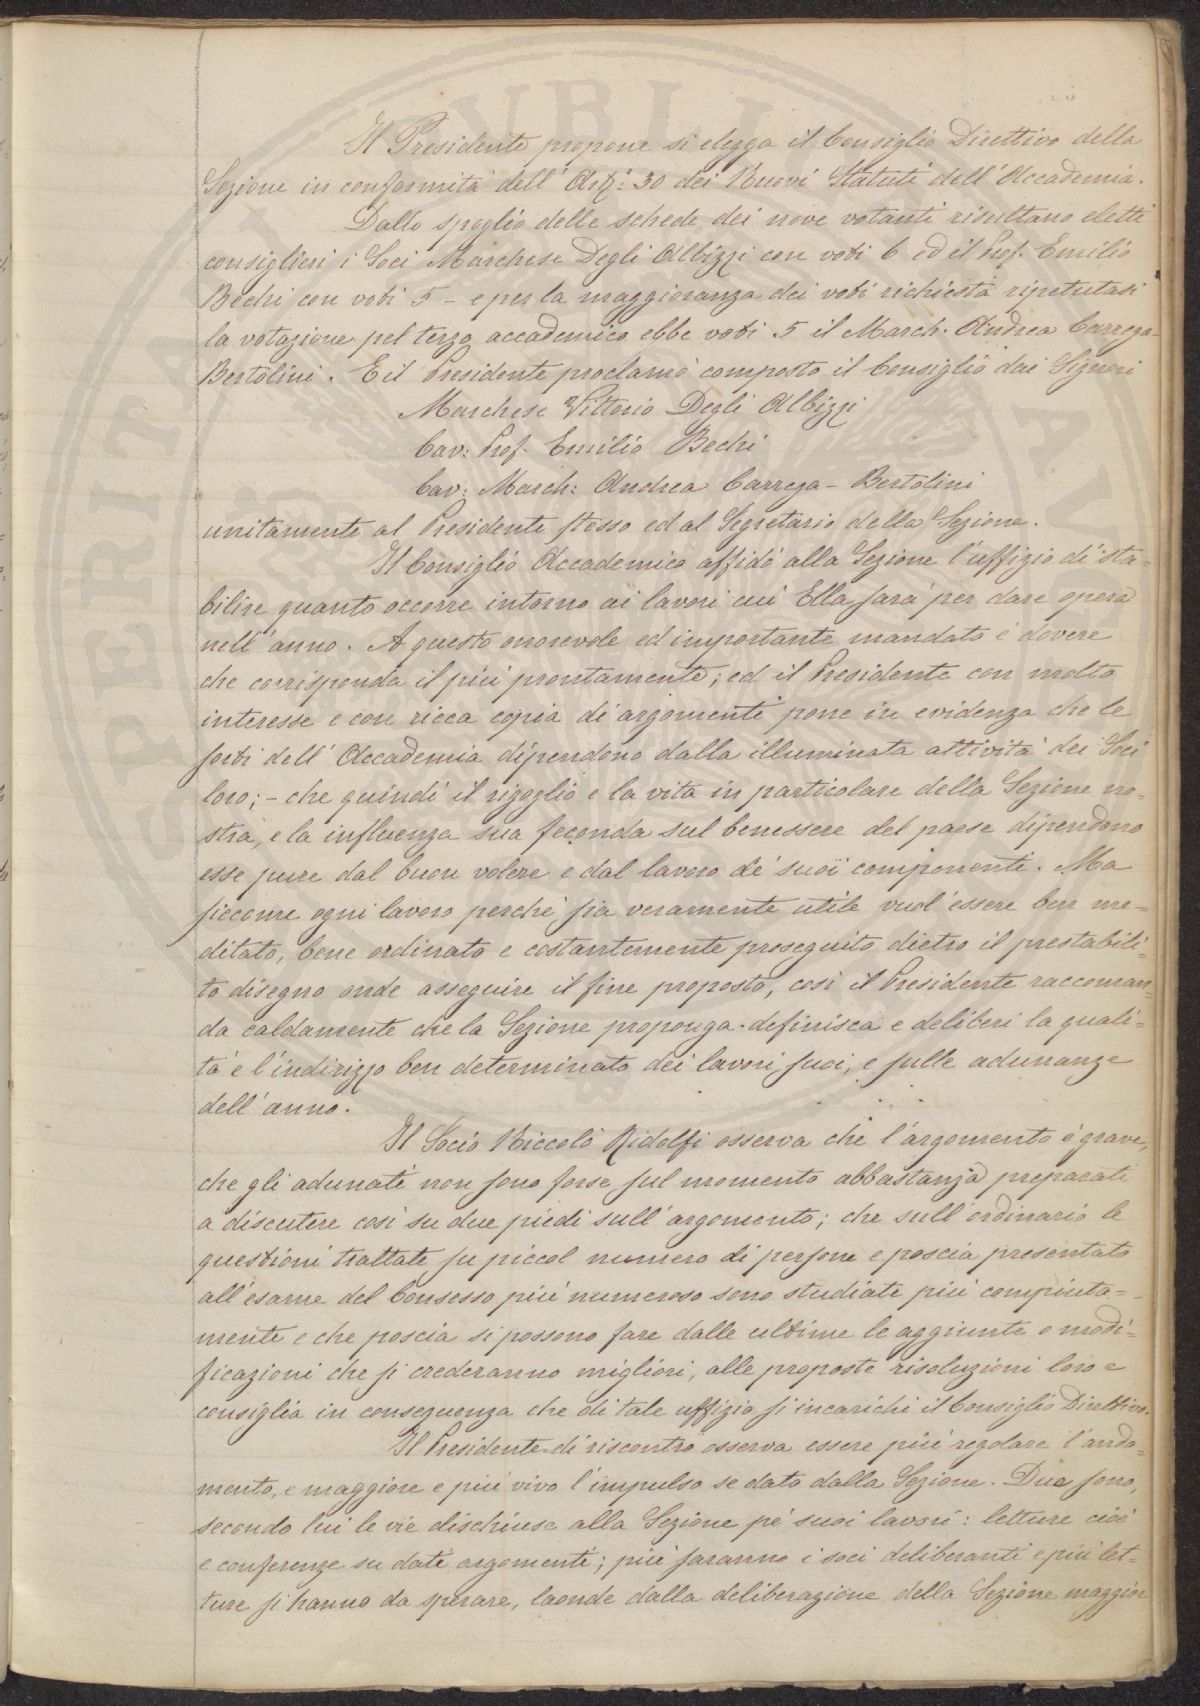 Il Presidente propone si elegga il Consiglio Direttivo della
Sezione in conformità dell'Art: 30 dei Nuovi Statuti dell'Accademia.
Dallo spoglio delle schede dei nove votanti risultano eletti
consiglieri i Soci Marchese Degli Albizzi con voti 6 ed il Prof. Emilio
Bechi con voti 5 - e per la maggioranza dei voti richiesta ripetutasi
la votazione pel terzo accademico ebbe voti 5 il March. Andrea Carrega-
Bertolini. E il Presidente proclamò composto il Consiglio dai Signori
Marchese Vittorio Degli Albizzi
Cav: Prof. Emilio Bechi
Cav: March: Andrea Carrega - Bertolini
unitamente al Presidente stesso ed al Segretario della Sezione.
Il Consiglio Accademico affidò alla Sezione l'uffizio di sta=
bilire quanto occorre intorno ai lavori cui Ella sarà per dare opera
nell'anno. A questo onorevole ed importante mandato è dovere
che corrisponda il più prontamente; ed il Presidente con molto
interesse e con ricca copia di argomenti pone in evidenza che le
sorti dell'Accademia dipendono dalla illuminata attività dei Soci
loro; - che quindi il rigoglio e la vita in particolare della Sezione no=
stra, e la influenza sua feconda sul benessere del paese dipendono
esse pure dal buon volere e dal lavoro de' suoi componenti. Ma
siccome ogni lavoro perchè sia veramente utile vuol essere ben me=
ditato, bene ordinato e costantemente proseguito dietro il prestabili=
to disegno onde asseguire il fine proposto, così il Presidente raccoman=
da caldamente che la Sezione proponga. definisca e deliberi la quali=
tà e l'indirizzo ben determinato dei lavori suoi, e sulle adunanze
dell'anno.
Il Socio Niccolò Ridolfi osserva che l'argomento è grave,
che gli adunati non sono forse sul momento abbastanza preparati
a discutere così su due piedi sull'argomento; che sull'ordinario le
questioni trattate su piccol numero di persone e poscia presentate
all'esame del Consesso più numeroso sono studiate più compiuta=
mente e che poscia si possono fare dalle ultime le aggiunte o modi=
ficazioni che si crederanno migliori, alle proposte risoluzioni loro e
consiglia in conseguenza che di tale uffizio si incarichi il Consiglio Direttivo.
Il Presidente di riscontro osserva essere più regolare l'anda=
mento, e maggiore e più vivo l'impulso se dato dalla Sezione. Due sono,
secondo lui le vie dischiuse alla Sezione pe' suoi lavori: letture cioè
e conferenze su dati argomenti; più saranno i soci deliberanti e più let=
ture si hanno da sperare, laonde dalla deliberazione della Sezione maggior